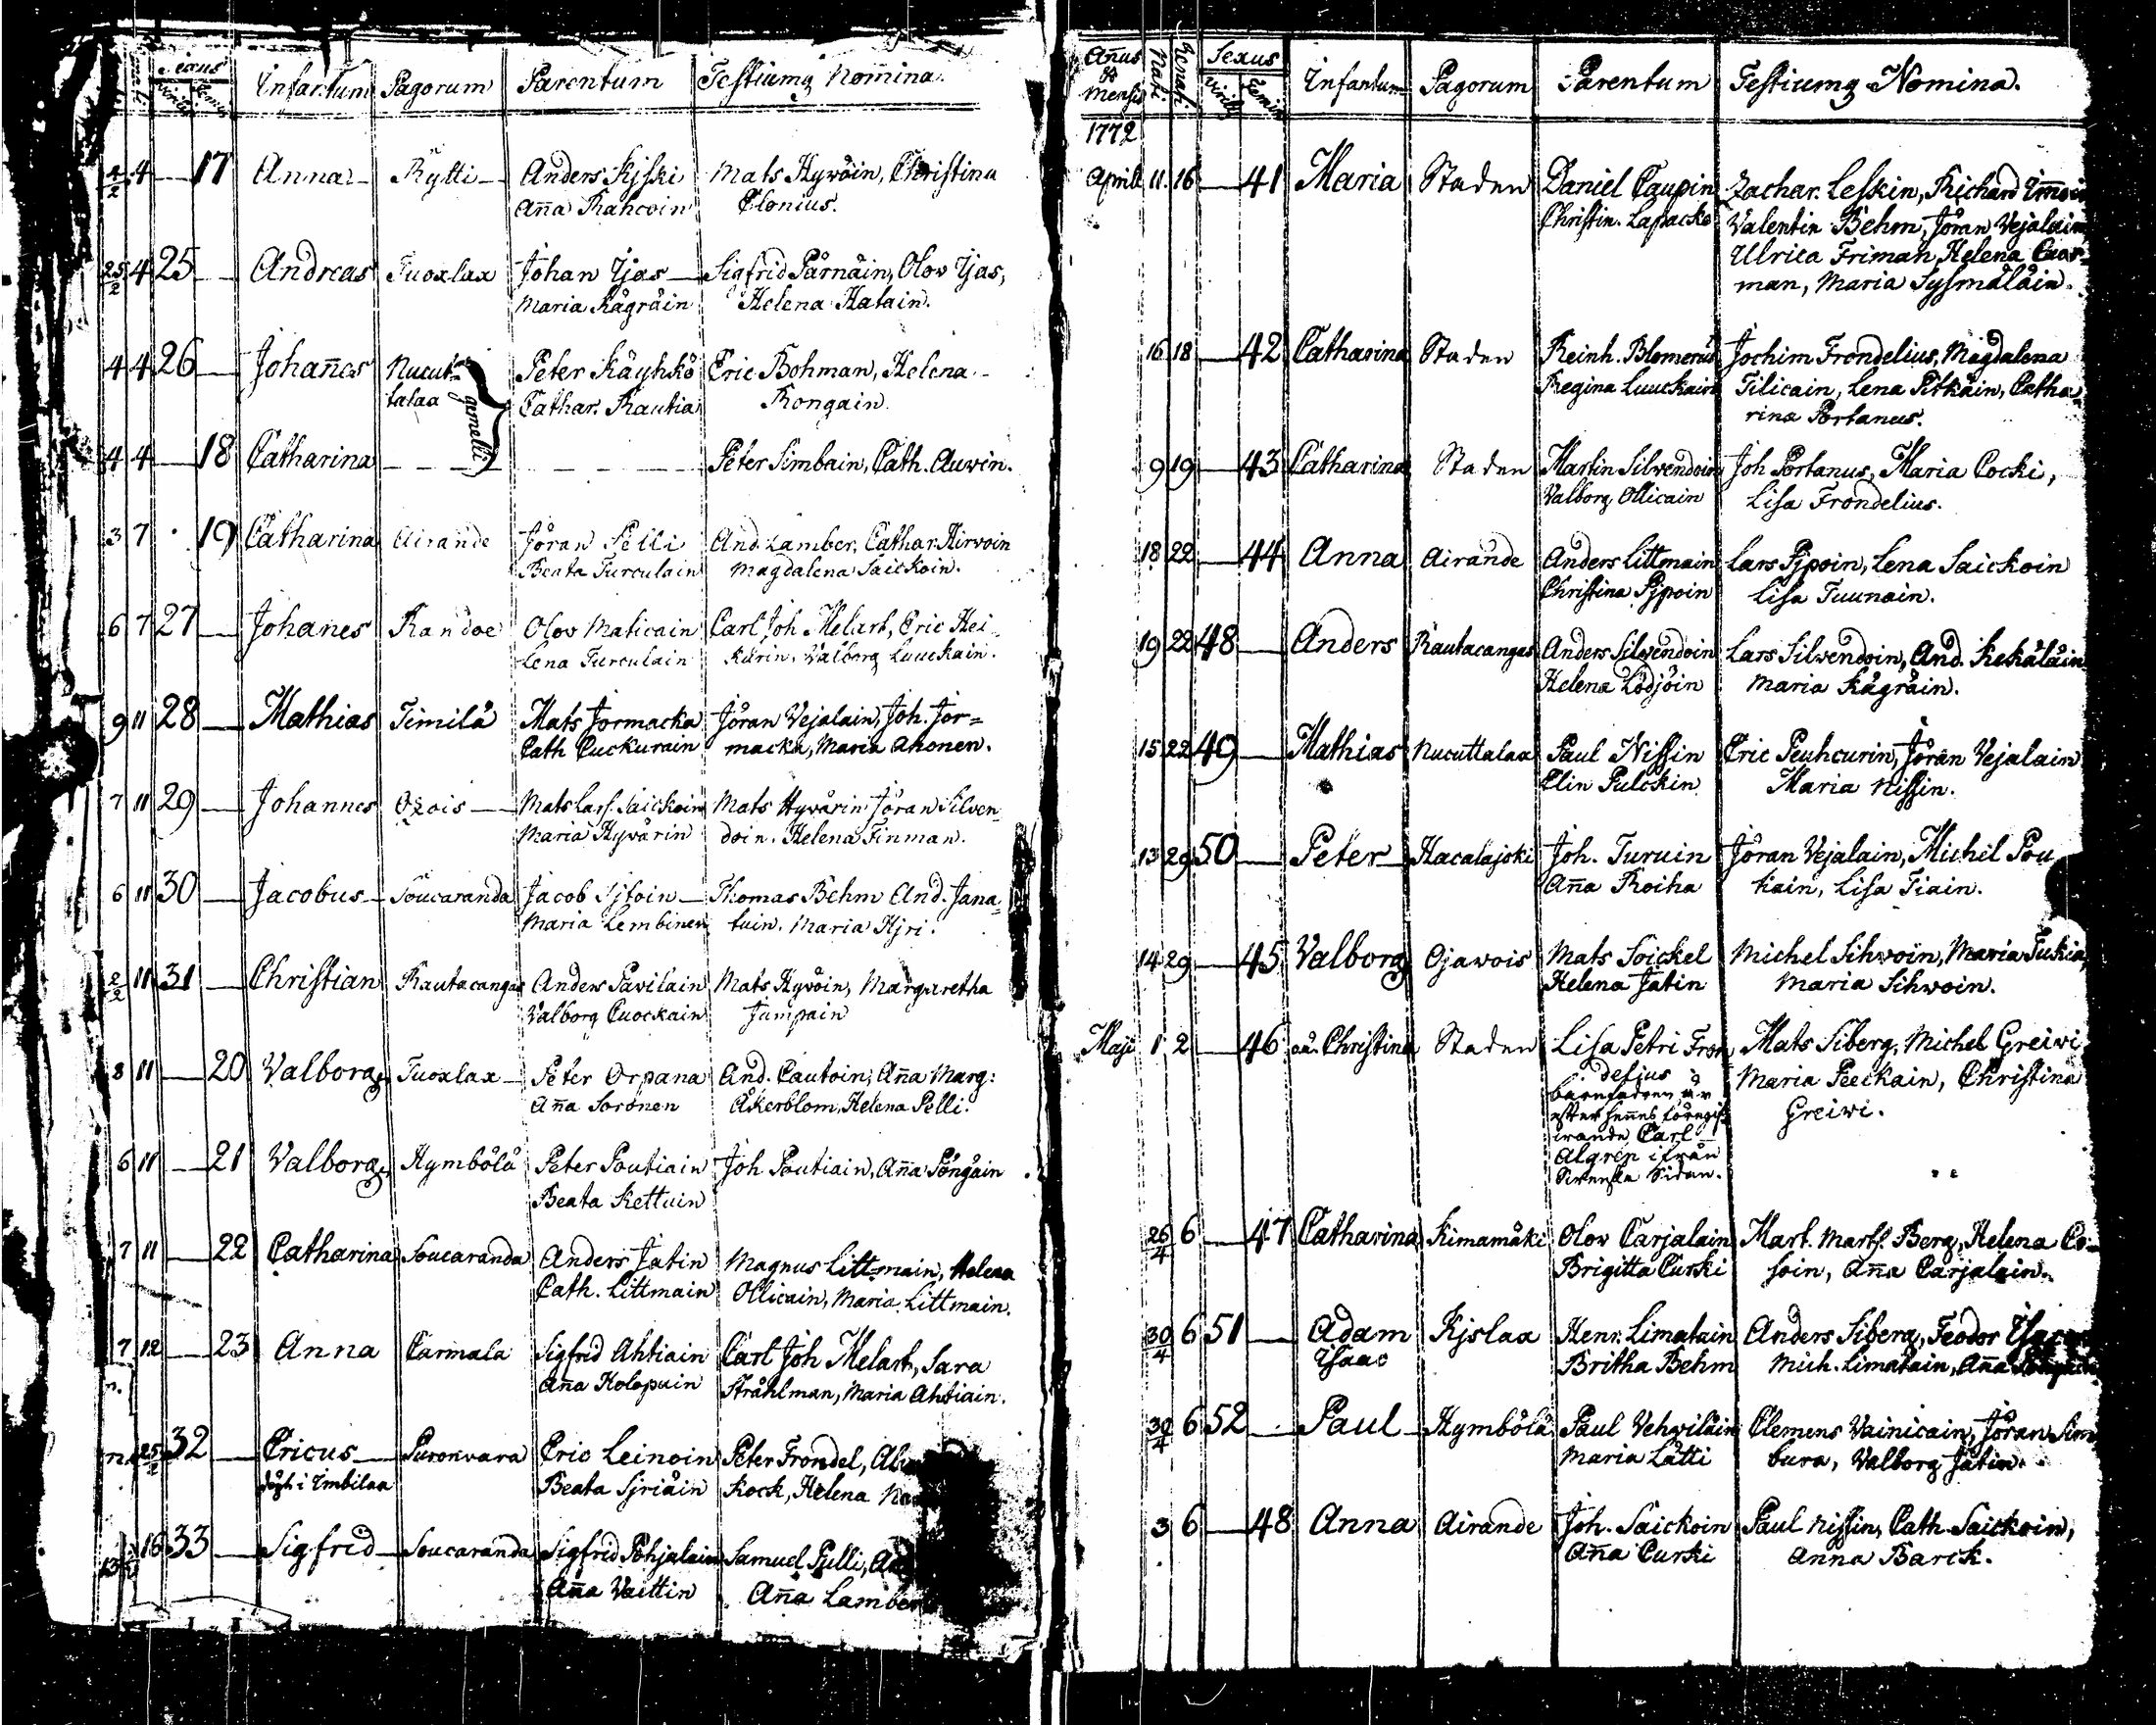 Sexus
Virile Femin
Infantum Pagorum Parentum Testiumq Nomina.
4/2 4 — 17 Anna — Rytti — Anders Kjski Mats Hyvöin, Christina
Aña Rahcoin Clonius.
25/2 4 25 — Andreas Tuoxlax Johan Yjas — Sigfrid Pärnäin, Olov Yjas,
Maria Kägräin Helena Hatain.
4 4 26 — Johañes Nucut= Peter Käyhkö Eric Bohman, Helena
talaa gemelli Cathar. Rautia Rongain.
4 4 — 18 Catharina — — — — — — — Peter Simbain, Cath. Auwin.
3 7 . 19 Catharina Airande Jöran Pelli And. Lamber, Cathar. Hirvoin
Beata Turculain Magdalena Saickoin.
6 7 27 — Johanes Randoe Olov Maticain Carl Joh Melart, Eric Hei-
Lena Turculain kurin. Valborg Luuckain.
9 11 28 — Mathias Timilä Mats Jormacka Jöran Vejalain, Joh. Jor=
Cath Cuckurain macka, Maria Ahonen.
7 11 29 — Johannes Oxois — Mats Larss. Saickoin Mats Hyvärin Jöran Silven
Maria Hyvärin doin. Helena Finman.
6 11 30 — Jacobus — Soucaranda Jacob Sjtoin — Thomas Behm And. Jana=
Maria Lembinen tuin. Maria Hjri.
2/2 11 31 — Christian Rautacangas Anders Pavilain Mats Hyvöin, Margaretha
Valborg Cuockain Jumpain
8 11 — 20 Valborg Tuoxlax — Peter Orpana And. Cautoin, Aña Marg:
Aña Soronen Åkerblom, Helena Pelli.
6 11 — 21 Valborg Hymbölä Peter Poutiain Joh Poutiain, Aña Pöngäin
Beata Kettuin
7 11 — 22 Catharina Soucaranda Anders Jatin Magnus Littmain, Helena
Cath. Littmain Ollicain, Maria Littmain.
7 12 — 23 Anna Carmala Sigfrid Ahtiain Carl Joh Melart, Sara
n. Aña Kolopain Stråhlman, Maria Ahtiain.
25/2 32 — Ericus — Puronvara Eric Leinoin Peter Frondel,
i Imbilaa Beata Sjriäin Kock, Helena
16 33 — Sigfrid — Soucaranda Sigfrid Pohjalain Samuel Pulli,
Aña Vaittin Aña Lamber
Añus & Mensis Nati Renati Sexus Virile Femin Infantum Pagorum Parentum Testiumq Nomina.
1772
Aprill 11. 16 — 41 Maria Staden Daniel Caupin Zachar. Leskin, Richard
Christin. Lapacko Valentin Behm, Jöran Vejalain
Ulrica Friman, Helena Caar=
man, Maria Sysmäläin.
16 18 — 42 Catharina Staden Reinh. Blomerus Jochim Frondelius, Magdalena
Regina Luuckain Tilicain, Lena Pitkäin, Catha=
rina Portanus.
9 19 — 43 Catharina Staden Martin Silvendoin Joh Portanus, Maria Cocki,
Valborg Ollicain Lisa Frondelius.
18 22 — 44 Anna Airande Anders Littmain Lars Pjpoin, Lena Saickoin
Christina Pjpoin Lisa Tuunain.
19 22 48 — Anders Rautacangas Anders Silvendoin Lars Silvendoin, And. Kekäläin
Helena Lödjöin Maria Kägräin.
15 22 49 — Mathias Nucuttalaa Paul Nissin Eric Peuhcurin, Jöran Vejalain
Elin Pulckin Maria Nissin.
13 29 50 — Peter — Hacalajoki Joh. Turuin Jöran Vejalain, Michel Pou
Aña Roiha tiain, Lisa Tiain.
14 29 — 45 Valborg Ojavois Mats Soickel Michel Sihvoin, Maria Tukia,
Helena Jatin Maria Sihvoin.
Maji 1 2 — 46 oä. Christina Staden Lisa Petri Fron Mats Siberg, Michel Greiwi
delius Maria Peeckain, Christina
barnfadren är Greiwi.
efter hennes föregif
wande Carl
Algren ifrån
Swenska Sidan.
26/4 6 — 47 Catharina Kimamäki Olov Carjalain Mart. Martss. Berg, Helena Co=
Brigitta Curki soin, Aña Carjalain.
30/4 6 51 — Adam Kjslax Henr. Limatain Anders Siberg, Feodor
Ysaac Britha Behm Mich. Limatain, Aña
30/4 6 52 — Paul — Hymbölä Paul Vehviläin Clemens Vainicain, Jöran Sim
Maria Lätti bura, Valborg Jatin.
3 6 — 48 Anna Airande Joh. Saickoin Paul Nissin, Cath. Saickoin,
Aña Curki Anna Barck.